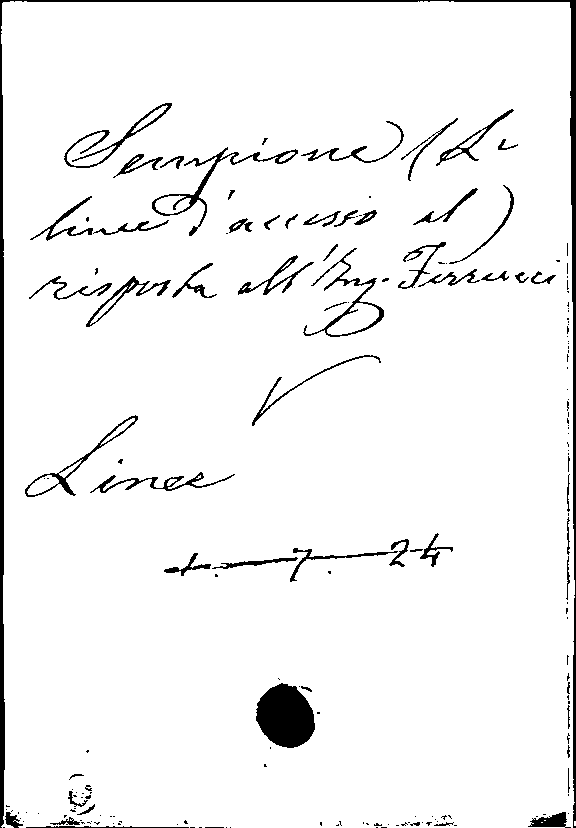 Sempione (Le
linee d'accesso al)
risposta all'Ing. Ferrucci
V
Linee
1. 7. 24